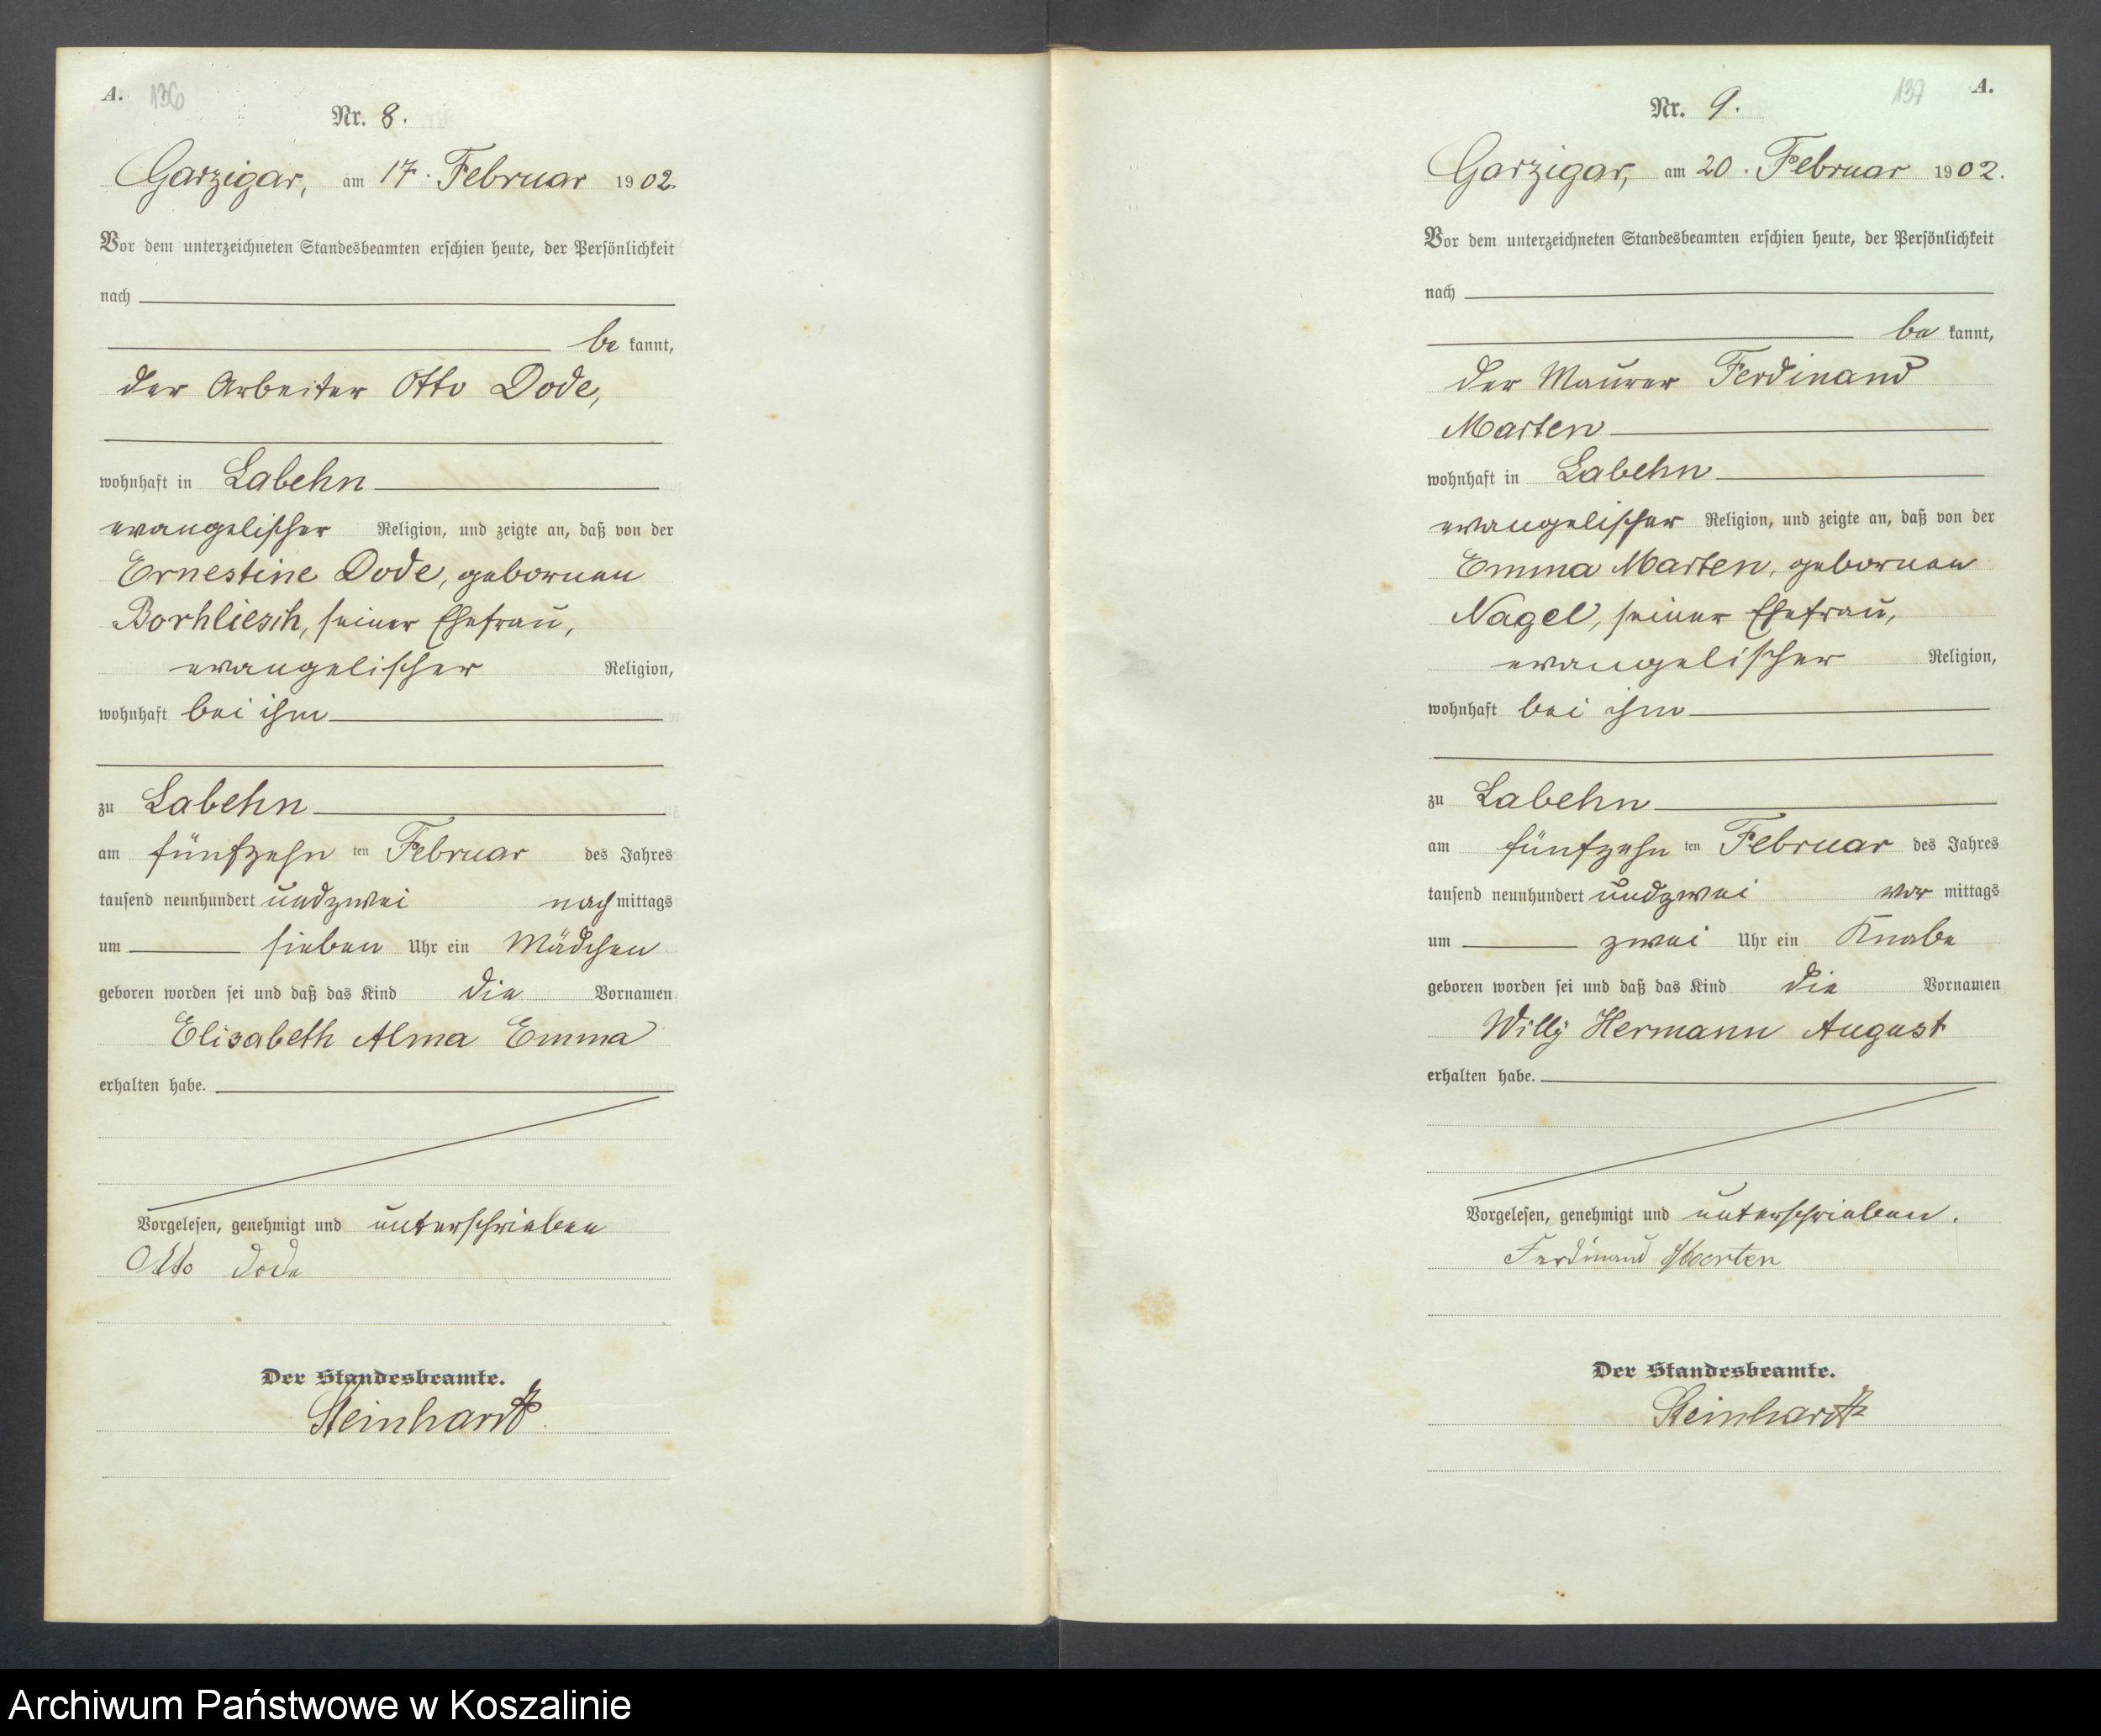 A. 136
Nr. 8.
Garzigar, am 17. Februar 1902.
Vor dem unterzeichneten Standesbeamten erschien heute, der Persönlichkeit
nach
be kannt,
der Arbeiter Otto Dode,
wohnhaft in Labehn
evangelischer Religion, und zeigte an, daß von der
Ernestine Dode, gebornen
seiner Ehefrau,
evangelischer Religion,
wohnhaft bei ihm
zu Labehn
am fünfzehn ten Februar des Jahres
tausend neunhundert undzwei nach mittags
um sieben Uhr ein Mädchen
geboren worden sei und daß das Kind die Vornamen
Elisabeth Alma Emma
erhalten habe.
Vorgelesen, genehmigt und unterschrieben
Otto Dode
Der Standesbeamte.
Steinhardt
137 A.
Nr. 9.
Garzigar, am 20. Februar 1902.
Vor dem unterzeichneten Standesbeamten erschien heute, der Persönlichkeit
nach
be kannt,
der Maurer Ferdinand
Marten
wohnhaft in Labehn
evangelischer Religion, und zeigte an, daß von der
Emma Marten, gebornen
Nagel, seiner Ehefrau,
evangelischer Religion,
wohnhaft bei ihm
zu Labehn
am fünfzehn ten Februar des Jahres
tausend neunhundert undzwei vor mittags
um zwei Uhr ein Knabe
geboren worden sei und daß das Kind die Vornamen
Willy Hermann August
erhalten habe.
Vorgelesen, genehmigt und unterschrieben.
Ferdinand Marten
Der Standesbeamte.
Steinhardt
Archiwum Państwowe w Koszalinie